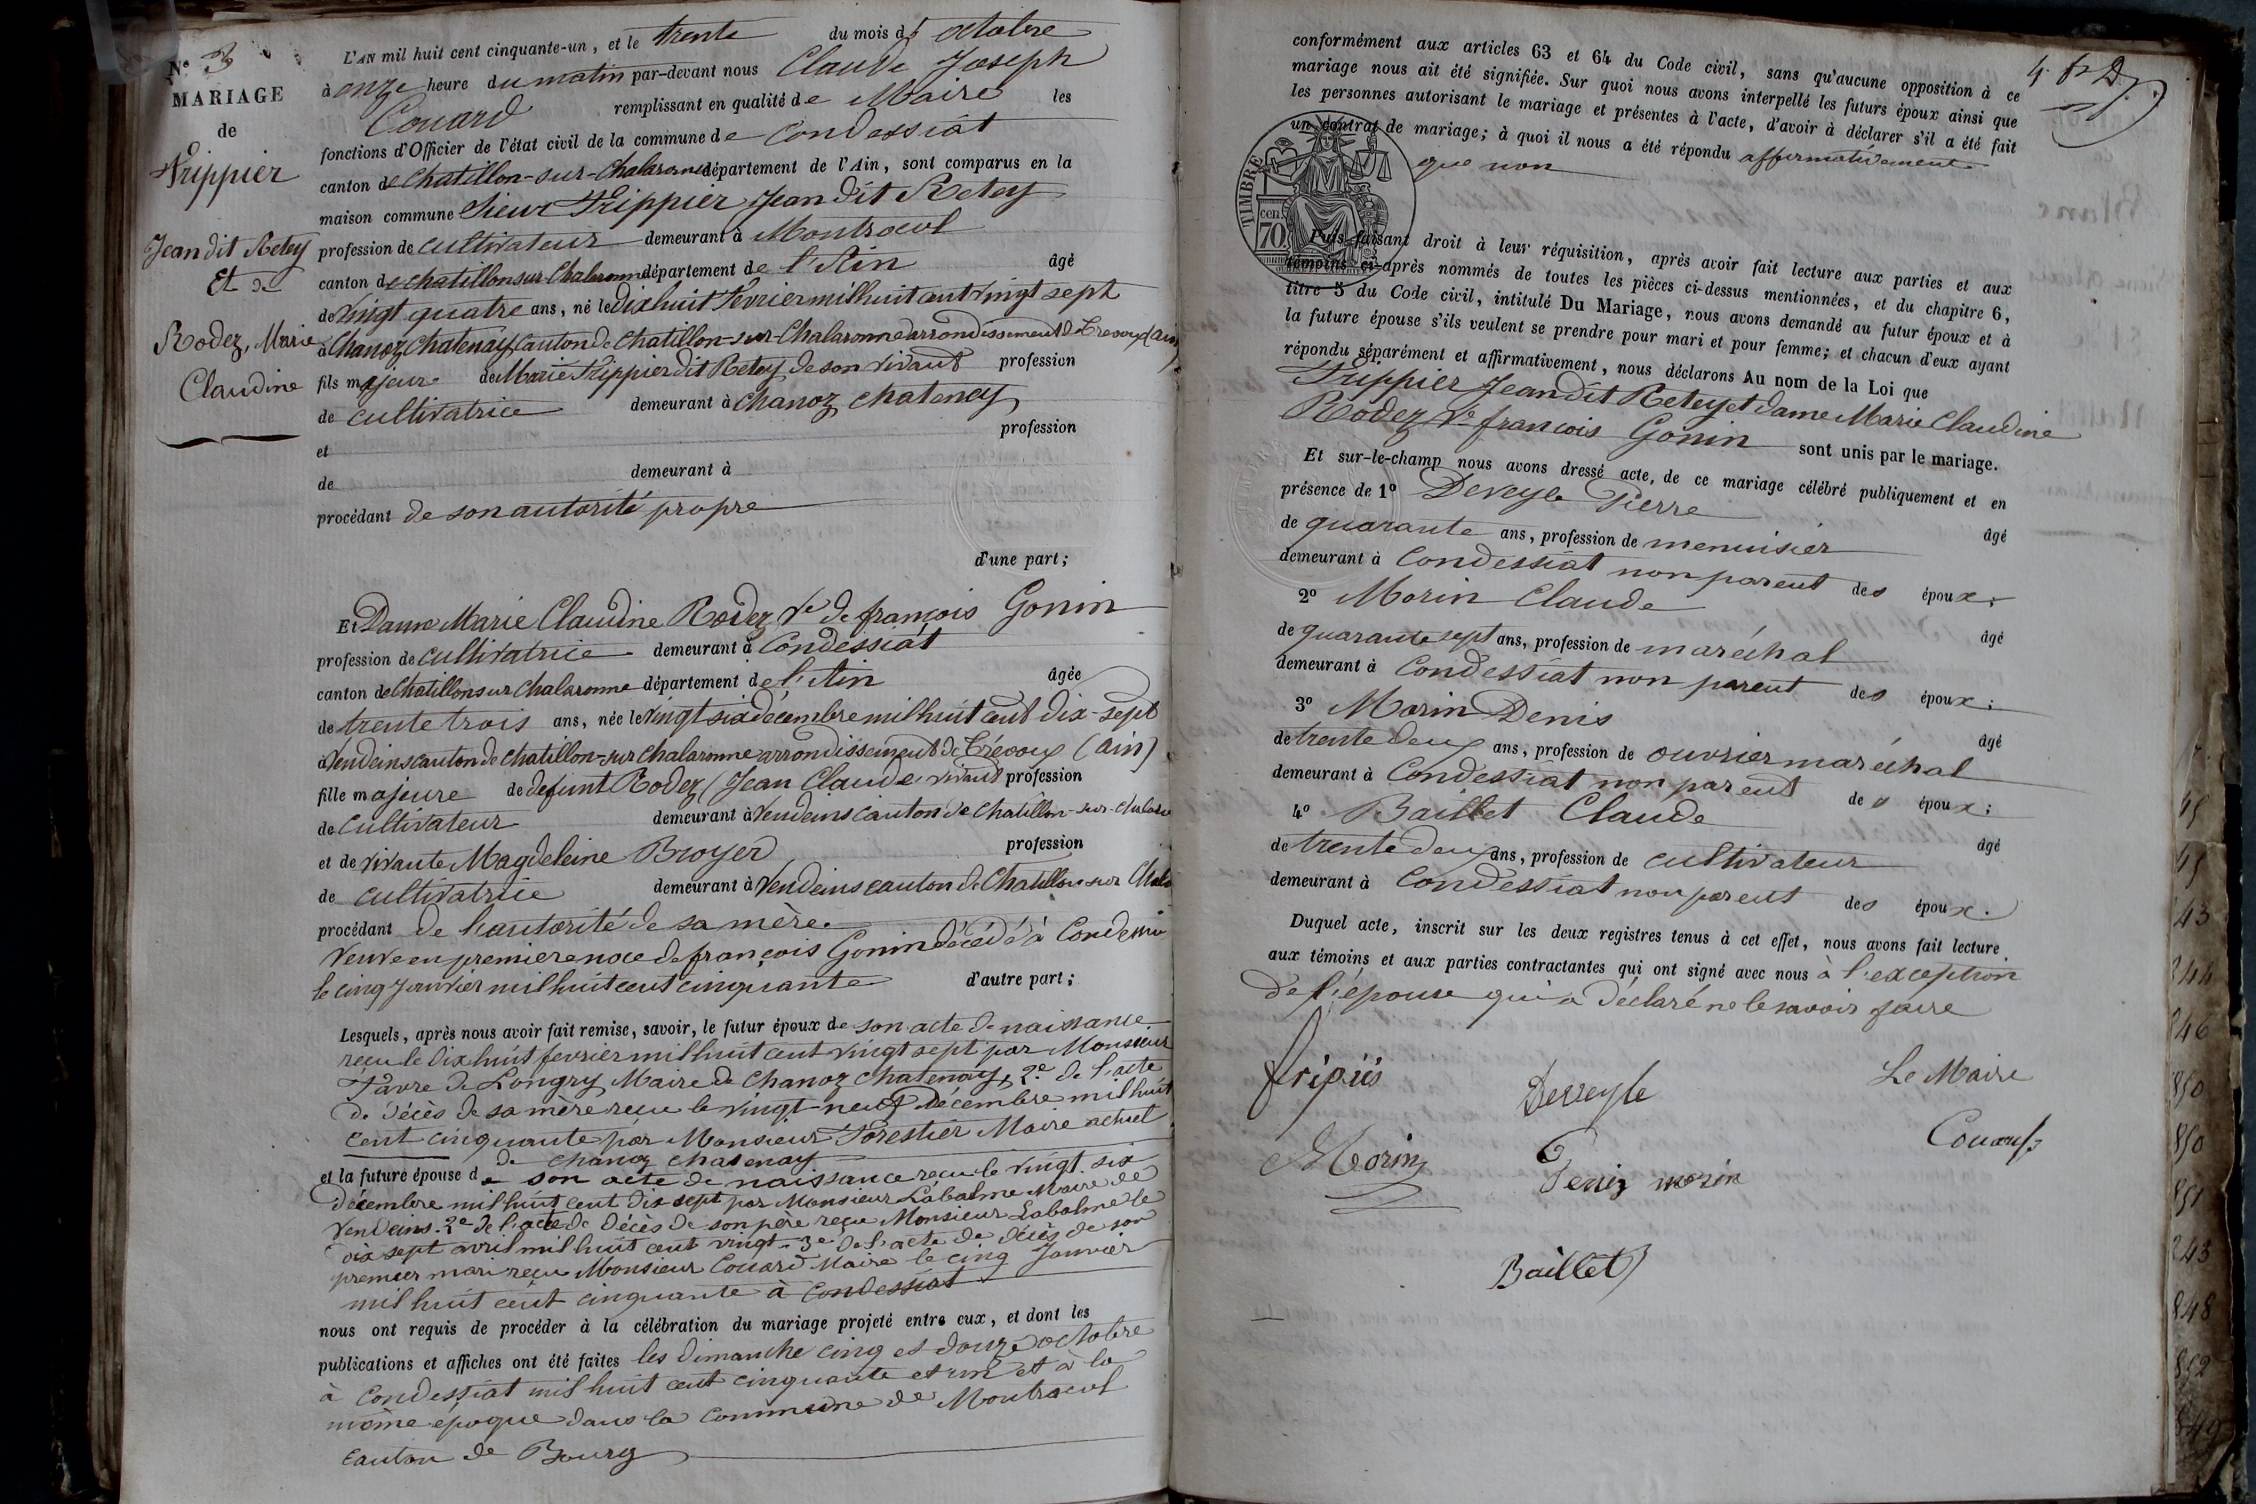 N° 3
MARIAGE
de
Frippier
Jean dit Retey
Et de
Rodez, Marie
Claudine
L'AN mil huit cent cinquante-un, et le trente du mois d'octobre
à onze heure du matin par-devant nous Claude Joseph
Couard remplissant en qualité de Maire les
fonctions d'Officier de l'état civil de la commune de Condessiat
canton de Chatillon-sur-Chalaronne département de l'Ain, sont comparus en la
maison commune Sieur Frippier Jean dit Retey
profession de cultivateur demeurant à Montracol
canton de chatillon sur Chalaronne département de l'Ain âgé
de vingt quatre ans, né le dix huit Fevrier mil huit cent vingt sept
à Chanoz Chatenay, canton de Chatillon-sur-Chalaronne arrondissement de Trevoux (ain)
fils majeur de Marie Frippier dit Retey de son vivant profession
de cultivatrice demeurant à Chanoz chatenay
et profession
de demeurant à
procédant de son autorité propre
d'une part;
Et Dame Marie Claudine Rodez Ve de françois Gonin
profession de cultivatrice demeurant à Condessiat
canton de Chatillon sur Chalaronne département de l'Ain âgée
de trente trois ans, née le vingt six décembre mil huit cent dix-sept
à Vendeins canton de chatillon-sur chalaronne arrondissement de Trévoux (Ain)
fille majeure de defunt Rodez (Jean Claude vivant profession
de cultivateur demeurant à Vendeins canton de Chatillon-sur-chalaro
et de vivante Magdeleine Broyer profession
de cultivatrice demeurant à Vendeins canton de Chatillon sur Chala
procédant de l'autorité de sa mère.
Veuve en premiere noce de françois Gonin décédé à Condessia
le cinq janvier mil huit cent cinquante d'autre part;
Lesquels, après nous avoir fait remise, savoir, le futur époux de son acte de naissance
reçu le dix huit fevrier mil huit cent vingt sept par Monsieur
Favre de Longry Maire de Chanoz chatenay, 2e de l'acte
de décès de sa mère reçu le vingt-neuf décembre mil huit
cent cinquante par Monsieur Forestier Maire actuel
de chanoz chatenay
et la future épouse de son acte de naissance reçu le vingt six
décembre mil huit cent dix sept par Monsieur Labalme Maire de
Vendeins. 2e de l'acte de décès de son père reçu Monsieur Labalme le
dix sept avril mil huit cent vingt. 3e de l'acte de décès de son
premier mari reçu Monsieur Couard Maire le cinq Janvier
mil huit cent cinquante à Condessiat
nous ont requis de procéder à la célébration du mariage projeté entre eux, et dont les
publications et affiches ont été faites les dimanche cinq et douze octobre
à Condessiat mil huit cent cinquante et un et à la
même époque dans la commune de Montracol
canton de Bourg
conformément aux articles 63 et 64 du Code civil, sans qu'aucune opposition à ce
mariage nous ait été signifiée. Sur quoi nous avons interpellé les futurs époux ainsi que
les personnes autorisant le mariage et présentes à l'acte, d'avoir à déclarer s'il a été fait
un contrat de mariage; à quoi il nous a été répondu affirmativement
que non
TIMBRE
70 cen.
Puis faisant droit à leur réquisition, après avoir fait lecture aux parties et aux
témoins ci-après nommés de toutes les pièces ci-dessus mentionnées, et du chapitre 6,
titre 5 du Code civil, intitulé Du Mariage, nous avons demandé au futur époux et à
la future épouse s'ils veulent se prendre pour mari et pour femme; et chacun d'eux ayant
répondu séparément et affirmativement, nous déclarons Au nom de la Loi que
Frippier Jean dit Retey et dame Marie Claudine
Rodez Ve françois Gonin sont unis par le mariage.
Et sur-le-champ nous avons dressé acte, de ce mariage célébré publiquement et en
présence de 1° Deveyle Pierre
de quarante ans, profession de menuisier âgé
demeurant à Condessiat non parent des époux;
2° Morin Claude
de quarante sept ans, profession de maréchal âgé
demeurant à Condessiat non parent des époux;
3° Morin Denis
de trente deux ans, profession de ouvrier maréchal âgé
demeurant à Condessiat non parent des époux;
4° Baillet Claude
de trente deux ans, profession de cultivateur âgé
demeurant à Condessiat non parent des époux.
Duquel acte, inscrit sur les deux registres tenus à cet effet, nous avons fait lecture
aux témoins et aux parties contractantes qui ont signé avec nous à l'exception
de l'épouse qui a déclaré ne le savoir faire
fripiés
Deveyle
Le Maire
Couard
Morin
Denis morin
Baillet